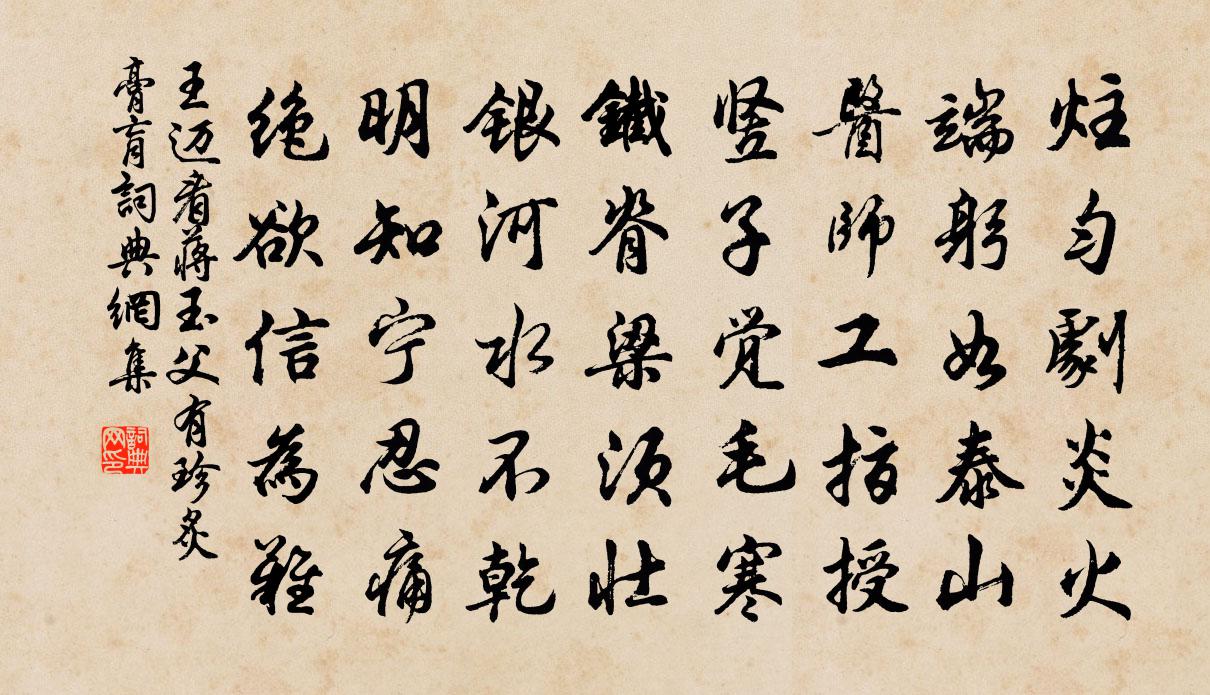 炷匀劇炎火
端躬如泰山
醫師工指授
竖子觉毛寒
鐵脊梁须壮
銀河水不乾
明知宁忍痛
绝欲信為難
王迈看蔣玉父有珍炙
膏肓詞典網集
詞典网印